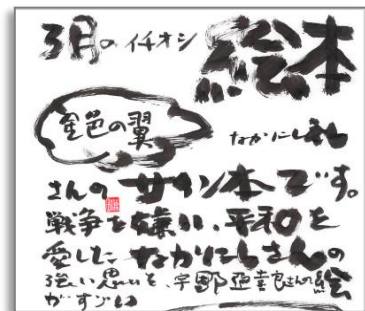 3月のイチオシ 絵本
金色の翼
なかにし礼
さんの サイン本です。
戦争を嫌い、平和を
愛した なかにしさんの
強い思いを、宇野亞喜良さんの絵
がすごい